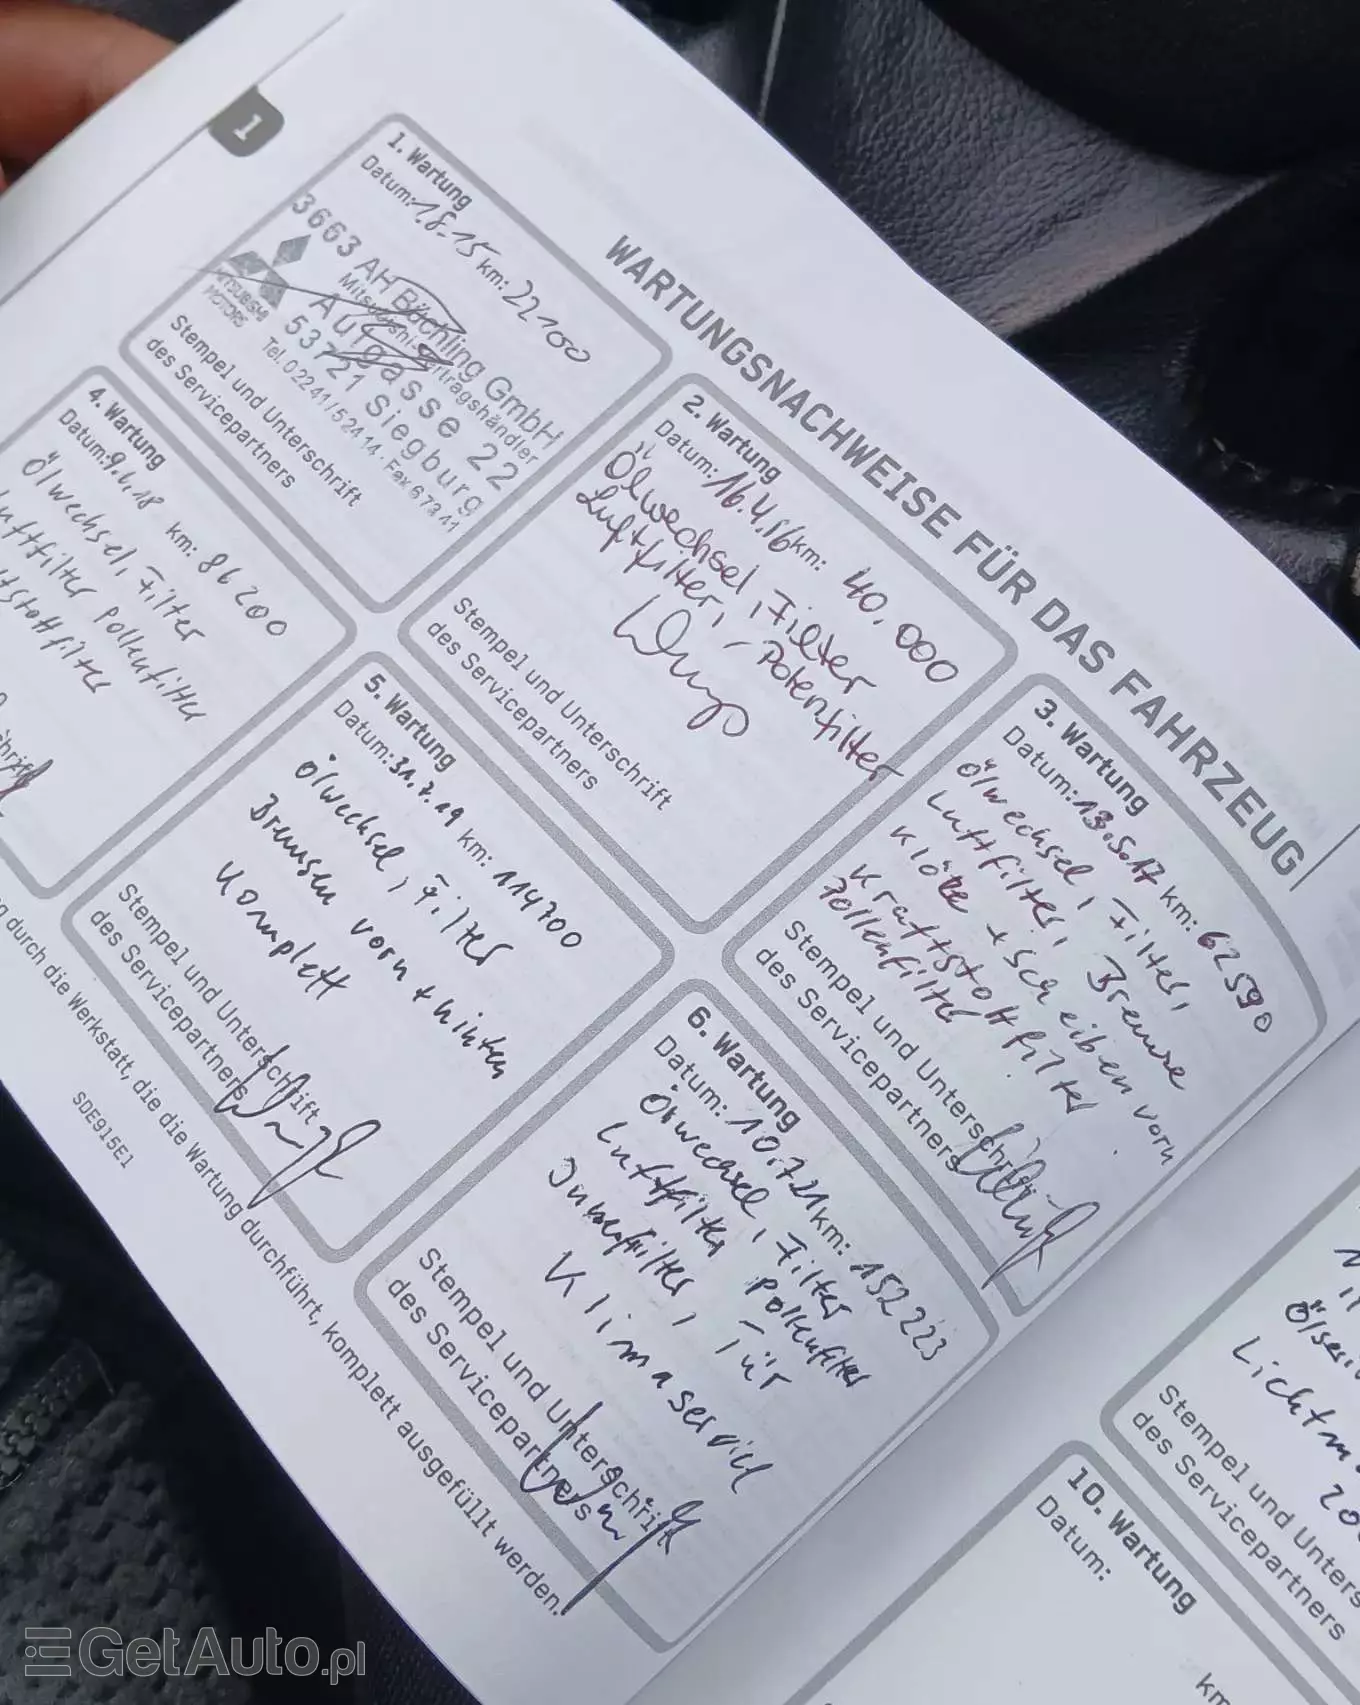 1
WARTUNGSNACHWEISE FÜR DAS FAHRZEUG
1. Wartung
Datum: 1.8.15 km: 22100
3663 AH Bächling GmbH
Mitsubishi-Vertragshändler
MITSUBISHI
MOTORS
Augasse 22
53721 Siegburg
Tel. 02241/52414 · Fax 67341
Stempel und Unterschrift
des Servicepartners
2. Wartung
Datum: 16.4.16 km: 40.000
Ölwechsel, Filter
Luftfilter, - Potenfilter
Stempel und Unterschrift
des Servicepartners
3. Wartung
Datum: 13.5.17 km: 62590
Ölwechsel, Filter,
Luftfilter, Bremse
Klötze + scheiben vorn
Kraftstoffilter
Pollenfilter
Stempel und Unterschrift
des Servicepartners
4. Wartung
Datum: 9.6.18 km: 86200
Ölwechsel, Filter
Luftfilter Pollenfilter
5. Wartung
Datum: 31.7.19 km: 114700
Ölwechsel, Filter
Bremsen vorn + hinten
Komplett
Stempel und Unterschrift
des Servicepartners
6. Wartung
Datum: 10.7.21 km: 152223
Ölwechsel, Filter
Luftfilter Pollenfilter
Klimaservice
Stempel und Unterschrift
des Servicepartners
durch die Werkstatt, die die Wartung durchführt, komplett ausgefüllt werden.
SDE915E1
Stempel und Unters
des Servicepartners
10. Wartung
Datum:
km
GetAuto.pl